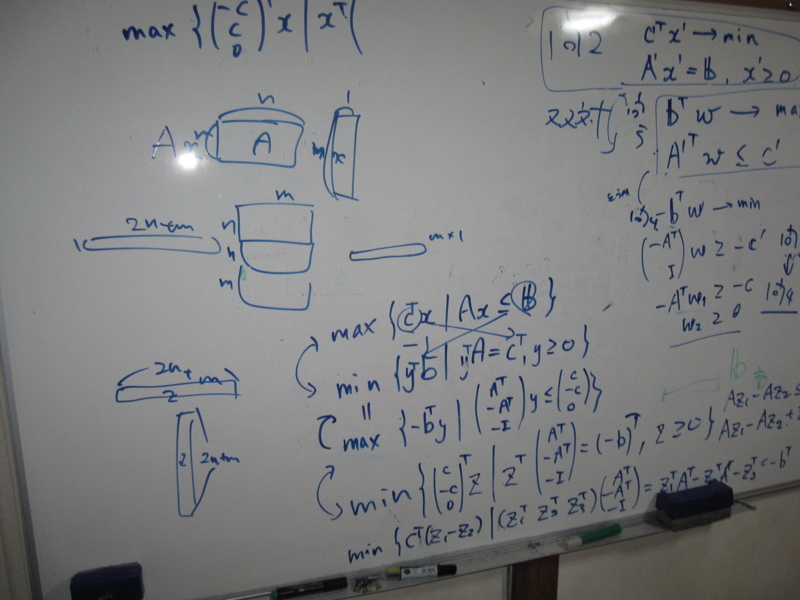 max {(-c c 0)' x | xᵀ(
n
A x n A
1
m x
m
n
n
m
1 2n+m
m×1
2n+m
z
z 2n+m
max {cᵀx | Ax ≤ b}
min {yᵀb | yᵀA = cᵀ, y ≥ 0}
=
max {-bᵀy | (Aᵀ -Aᵀ -I) y ≤ (c -c 0)}
min {(c -c 0)ᵀ z | zᵀ (Aᵀ -Aᵀ -I) = (-b)ᵀ, z ≥ 0}
min {cᵀ(z₁-z₂) | (z₁ᵀ z₂ᵀ z₃ᵀ)(Aᵀ -Aᵀ -I) = z₁ᵀAᵀ - z₂ᵀAᵀ - z₃ᵀ = -bᵀ
c'ᵀx' → min
A'x' = b, x' ≥ 0
bᵀ w → ma
A'ᵀ w ≤ c'
-bᵀ w → min
(-Aᵀ I) w ≥ -c'
-Aᵀw₁ ≥ -c
w₂ ≥ 0
b
Az₁-Az₂ ≤
Az₁-Az₂+z